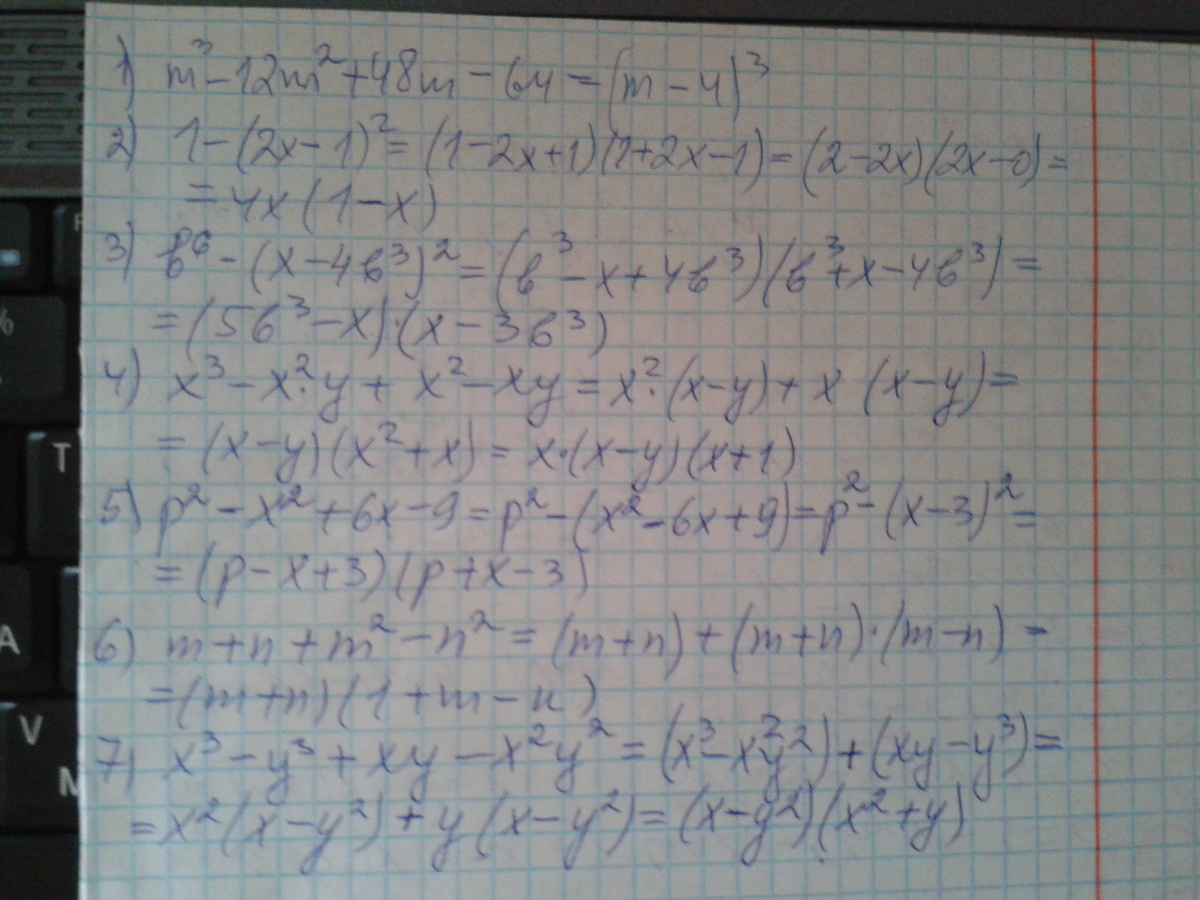 1) m³-12m²+48m-64=(m-4)³
2) 1-(2x-1)²=(1-2x+1)(1+2x-1)=(2-2x)(2x-0)=
=4x(1-x)
3) b⁶-(x-4b³)²=(b³-x+4b³)(b³+x-4b³)=
=(5b³-x)·(x-3b³)
4) x³-x²·y+x²-xy=x²·(x-y)+x (x-y)=
=(x-y)(x²+x)=x·(x-y)(x+1)
5) p²-x²+6x-9=p²-(x²-6x+9)=p²-(x-3)²=
=(p-x+3)(p+x-3)
6) m+n+m²-n²=(m+n)+(m+n)·(m-n)-
=(m+n)(1+m-n)
7) x³-y³+xy-x²y²=(x³-x²y²)+(xy-y³)=
=x²(x-y²)+y(x-y²)=(x-y²)(x²+y)
%
T
A
V
M